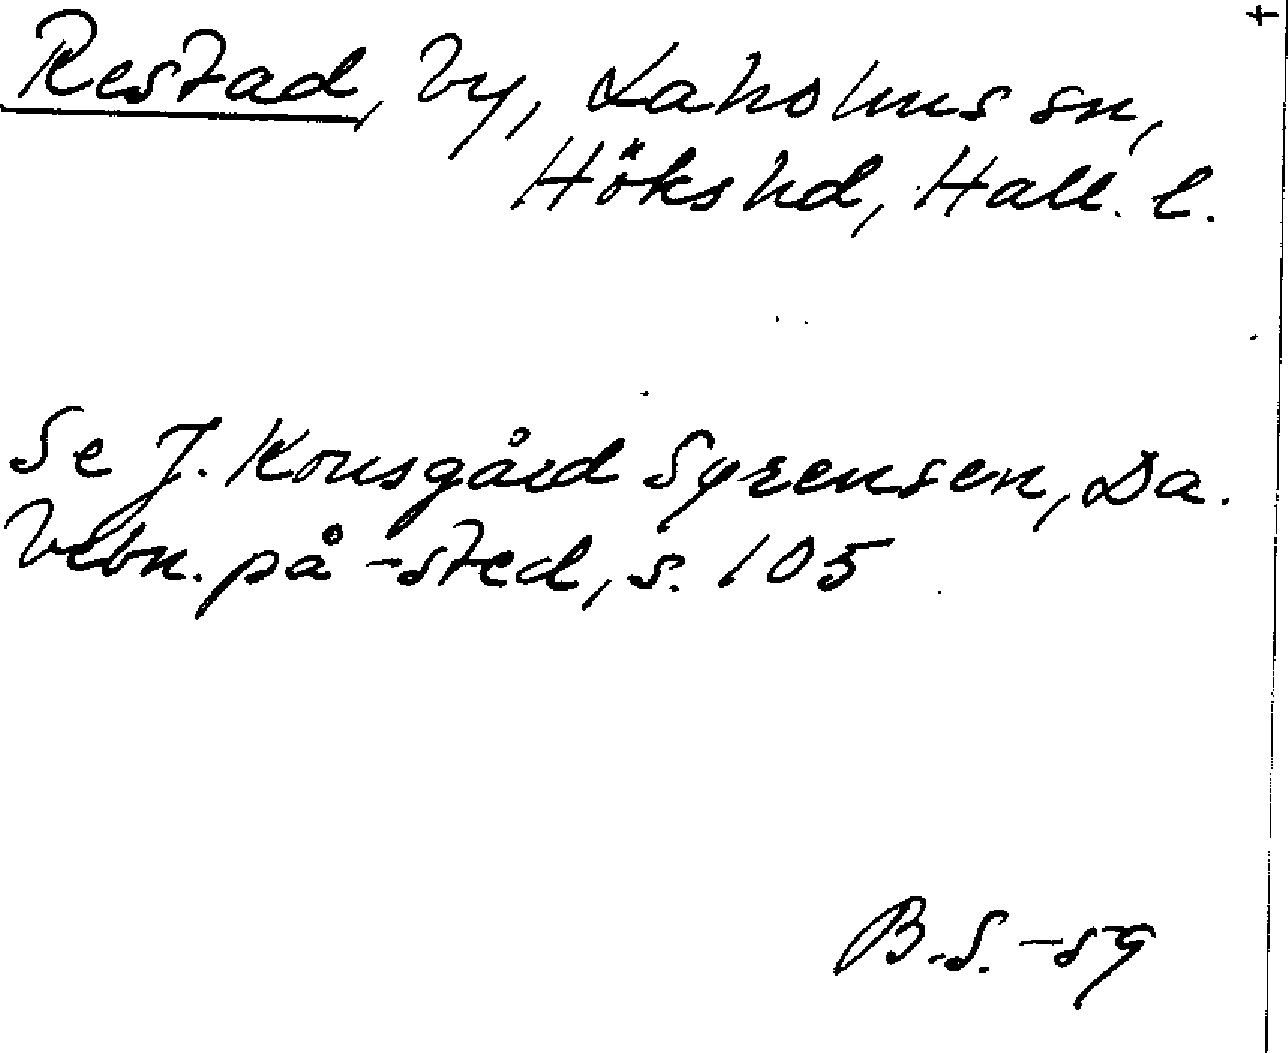 Restad, by, Laholms sn,
Höks hd, Hall. l.
Se J. Kousgård Sørensen, Da.
bebn. på -sted, s. 105
B. S. -59